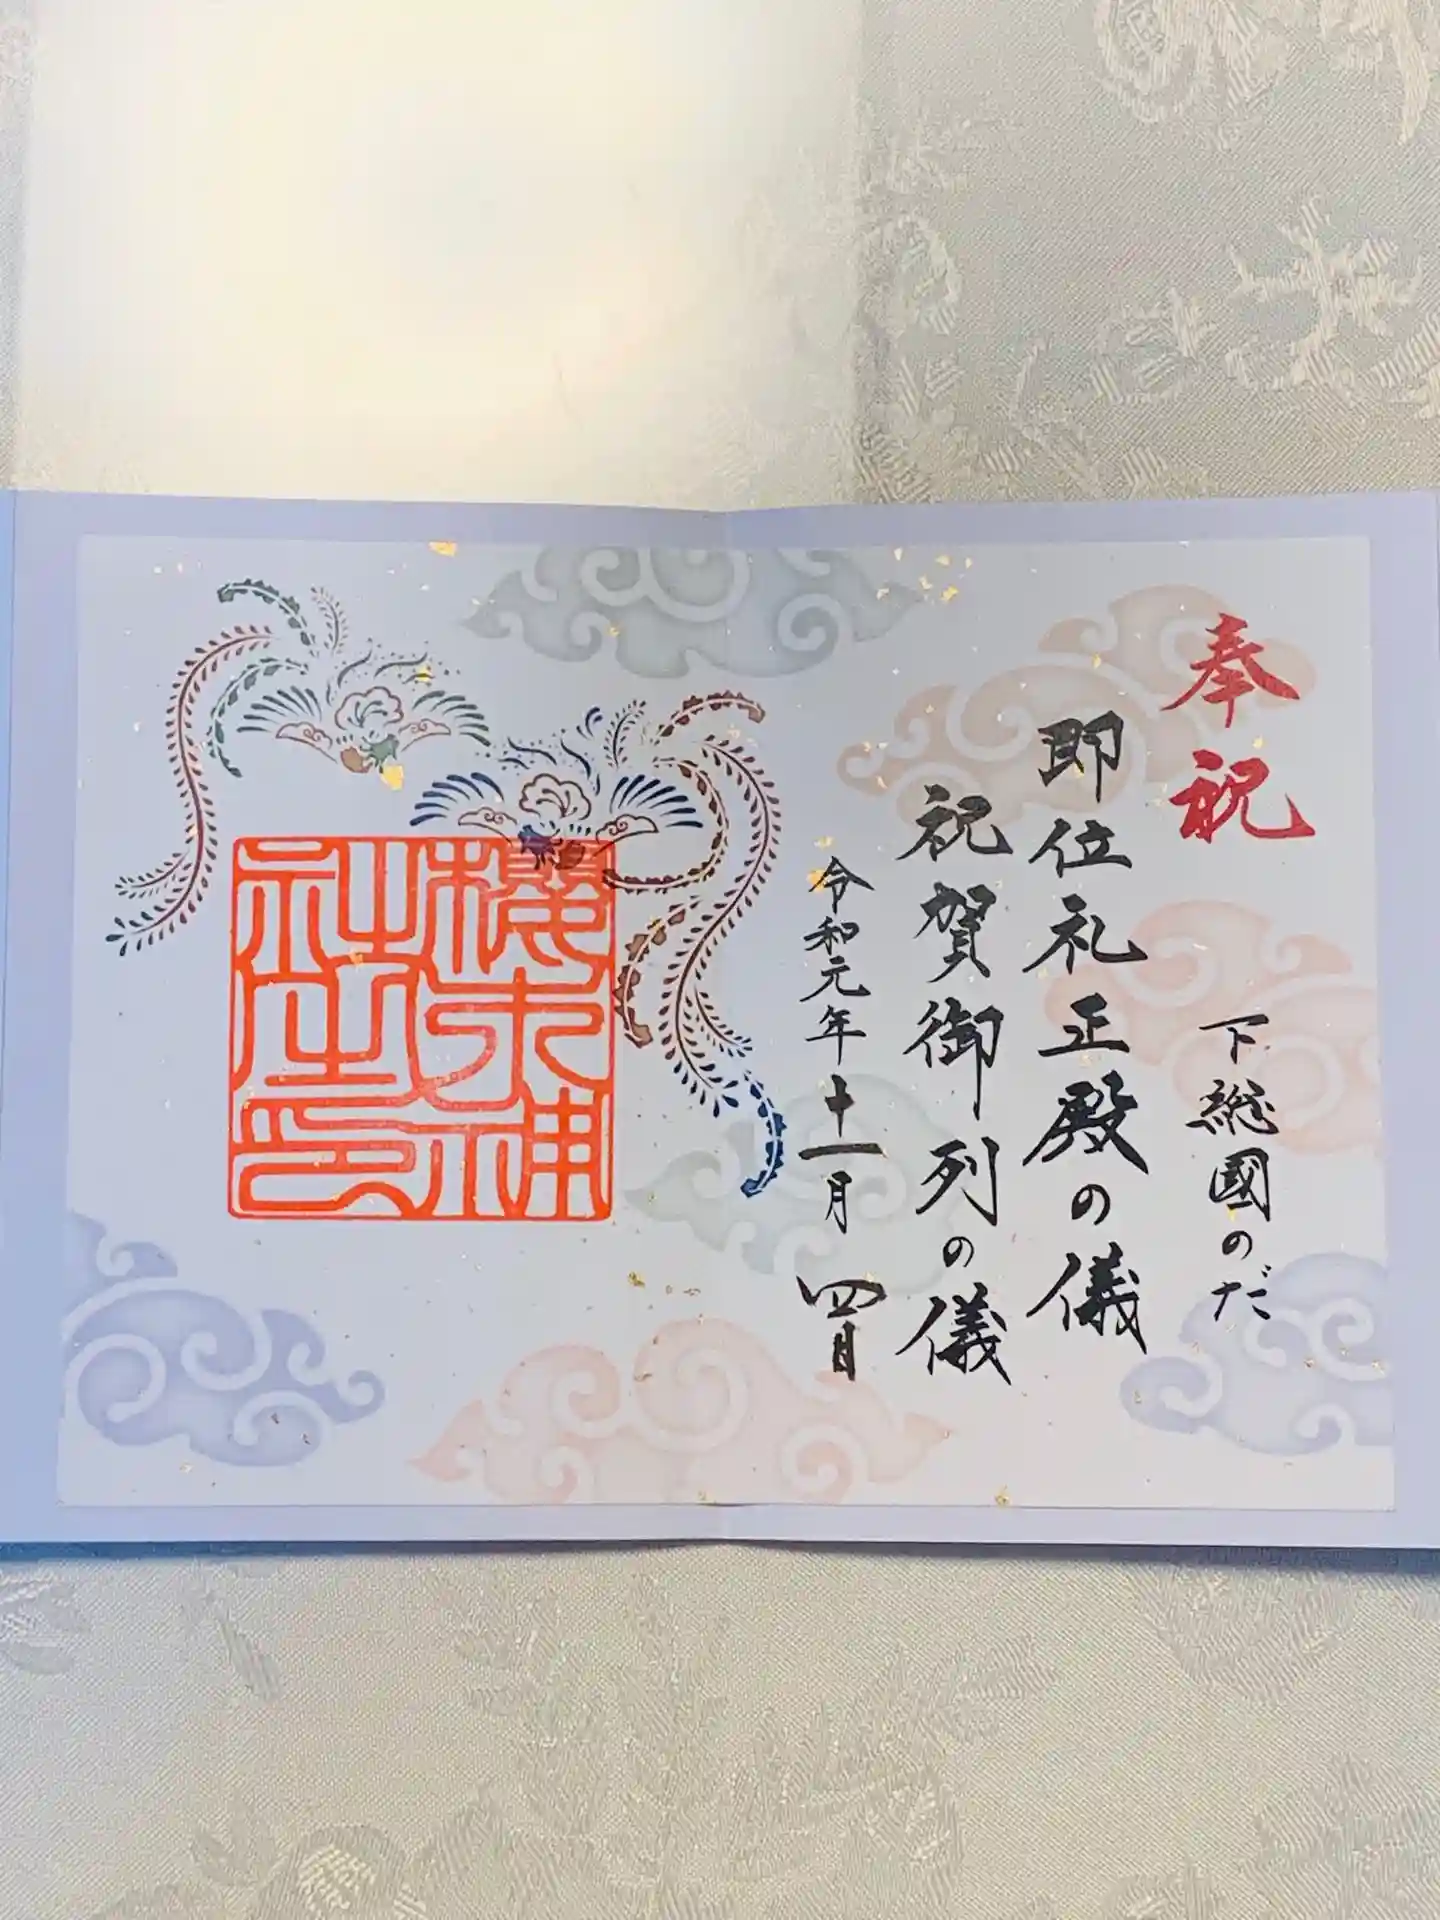 奉祝
下総國のだ
即位礼正殿の儀
祝賀御列の儀
令和元年十一月四日
櫻木神
社之
印